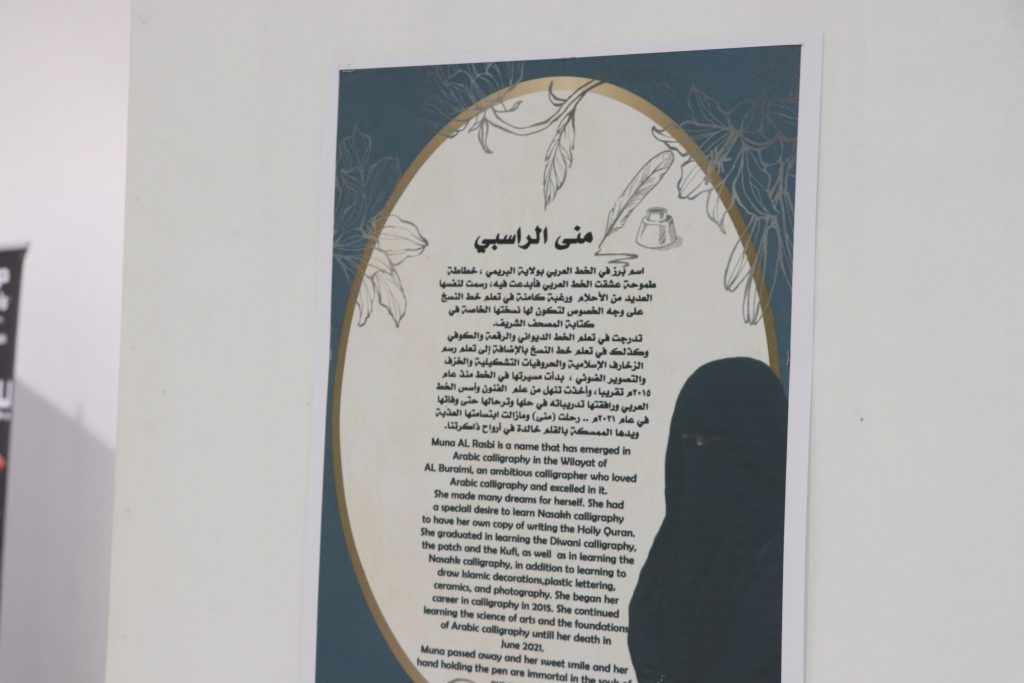 منى الراسبي
اسم بَرز في الخط العربي بولاية البريمي ، خطاطة
طموحة عشقت الخط العربي فأبدعت فيه، رسمت لنفسها
العديد من الأحلام ورغبة كامنة في تعلم خط النسخ
على وجه الخصوص لتكون لها نسختها الخاصة في
كتابة المصحف الشريف.
تدرجت في تعلم الخط الديواني والرقعة والكوفي
وكذلك في تعلم خط النسخ بالإضافة إلى تعلم رسم
الزخارف الإسلامية والحروفيات التشكيلية والخزف
والتصوير الضوئي ، بدأت مسيرتها في الخط منذ عام
٢٠١٥م تقريبا، وأخذت تنهل من علم الفنون وأسس الخط
العربي ورافقتها تدريباته في حلها وترحالها حتى وفاتها
في عام ٢٠٢١م .. رحلت (منى) ومازالت ابتسامتها العذبة
ويدها الممسكة بالقلم خالدة في أرواح ذاكرتنا.
Muna AL Rasbi is a name that has emerged in
Arabic calligraphy in the Wilayat of
AL Buraimi, an ambitious calligrapher who loved
Arabic calligraphy and excelled in it.
She made many dreams for herself. She had
a speciall desire to learn Nasakh calligraphy
to have her own copy of writing the Holly Quran.
She graduated in learning the Diwani calligraphy,
the patch and the Kufi, as well as in learning the
Nasahk calligraphy, in addition to learning to
draw Islamic decorations,plastic lettering,
ceramics, and photography. She began her
career in calligraphy in 2015. She continued
learning the science of arts and the foundations
of Arabic calligraphy untill her death in
June 2021.
Muna passed away and her sweet smile and her
hand holding the pen are immortal in the souls of